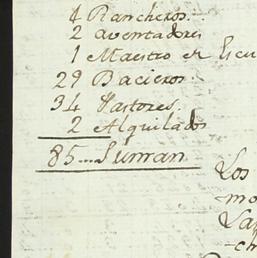 4 Rancheros.
2 aventadores
1 Maestro de Escu
29 Bacieros.
34 Pastores.
2 Alquilados
85... Suman
Los
mo
La
-ch